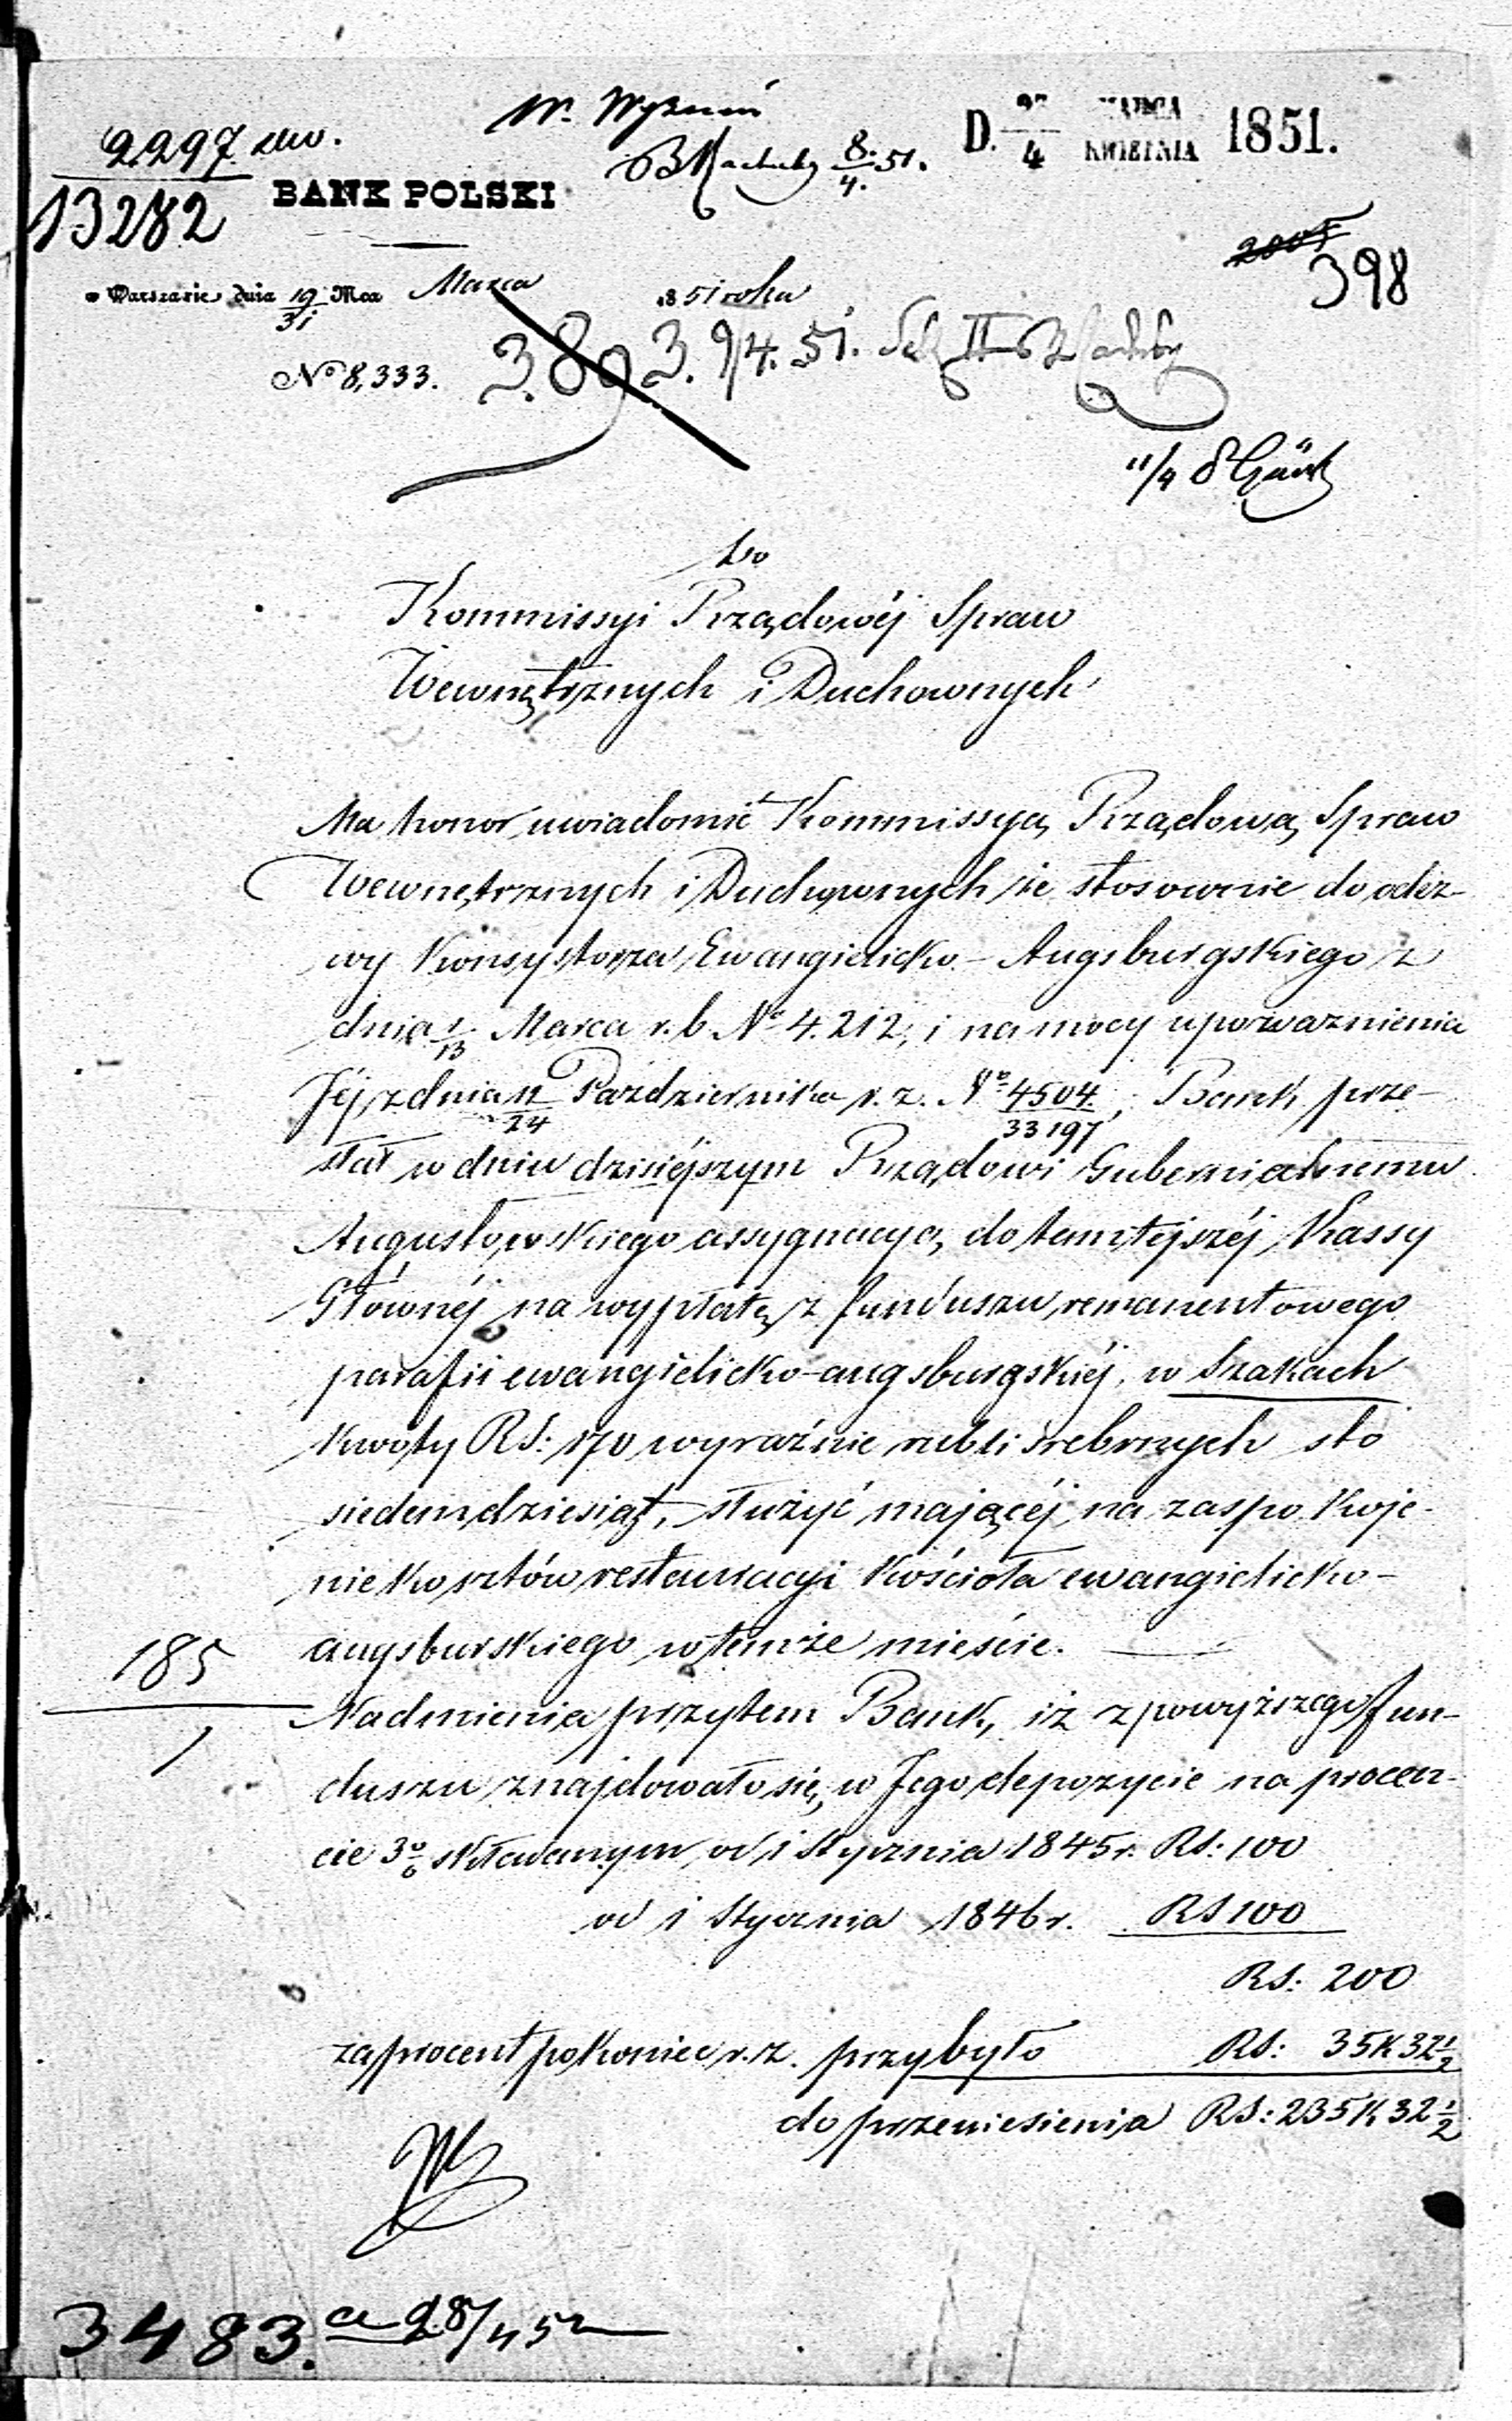 W. Wyznań
2297 
13282
BANK POLSKI
8/4. 51.
D. 4 MARCA KWIETNIA 1851.
2005
398
w Warszawie dnia 19/31 Mca Marca 1851 roku
No 8,333.
3.893. 9/4. 51. II
11/4
Do
Kommissyi Rządowéj Spraw
Wewnętrznych i Duchownych
Ma honor uwiadomić Kommissyą Rządową Spraw
Wewnętrznych i Duchownych że stosownie do odez-
wy Konsystorza Ewangielicko-Augsburgskiego z
dnia 1/13 Marca r. b. No 4.212, i na mocy upoważnienia
Jéj z dnia 12/24 Października r. z. No 4504/33197, Bank prze-
słał w dniu dzisiéjszym Rządowi Gubernialnemu
Augustowskiego assygnacyą do tamtejszéj Kassy
Głównéj na wypłatę z funduszu remanentowego
parafii ewangielicko-augsburgskiéj w Szakach
kwoty RS: 170 wyraźnie rubli srebrnych sto
siedemdziesiąt, służyć mającéj na zaspokoje-
nie kosztów restauracyi Kościoła ewangielicko-
augsburskiego w temże mieście.
185
1
Nadmienia przytem Bank, iż z powyższego fun-
duszu znajdowało się w Jego depozycie na procen-
cie 3% składanym od 1 Stycznia 1845 r. RS: 100
od 1 Stycznia 1846 r. RS 100
RS: 200
za procent po koniec r. z. przybyło RS: 35 K 32 1/2
do przeniesienia RS: 235 K 32 1/2
3483. a 28/4 52